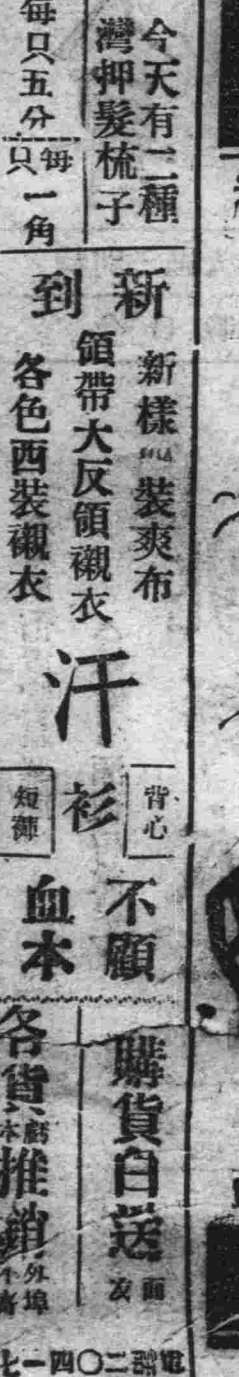 今天有二種
灣押髮梳子
每只五分
每只一角
新到
新樣 裝爽布
領帶大反領襯衣
各色西裝襯衣
汗衫
背心
短褲
不顧
血本
購貨白送
面友
各貨推銷
虧本
外埠不寄
電話二〇四一七